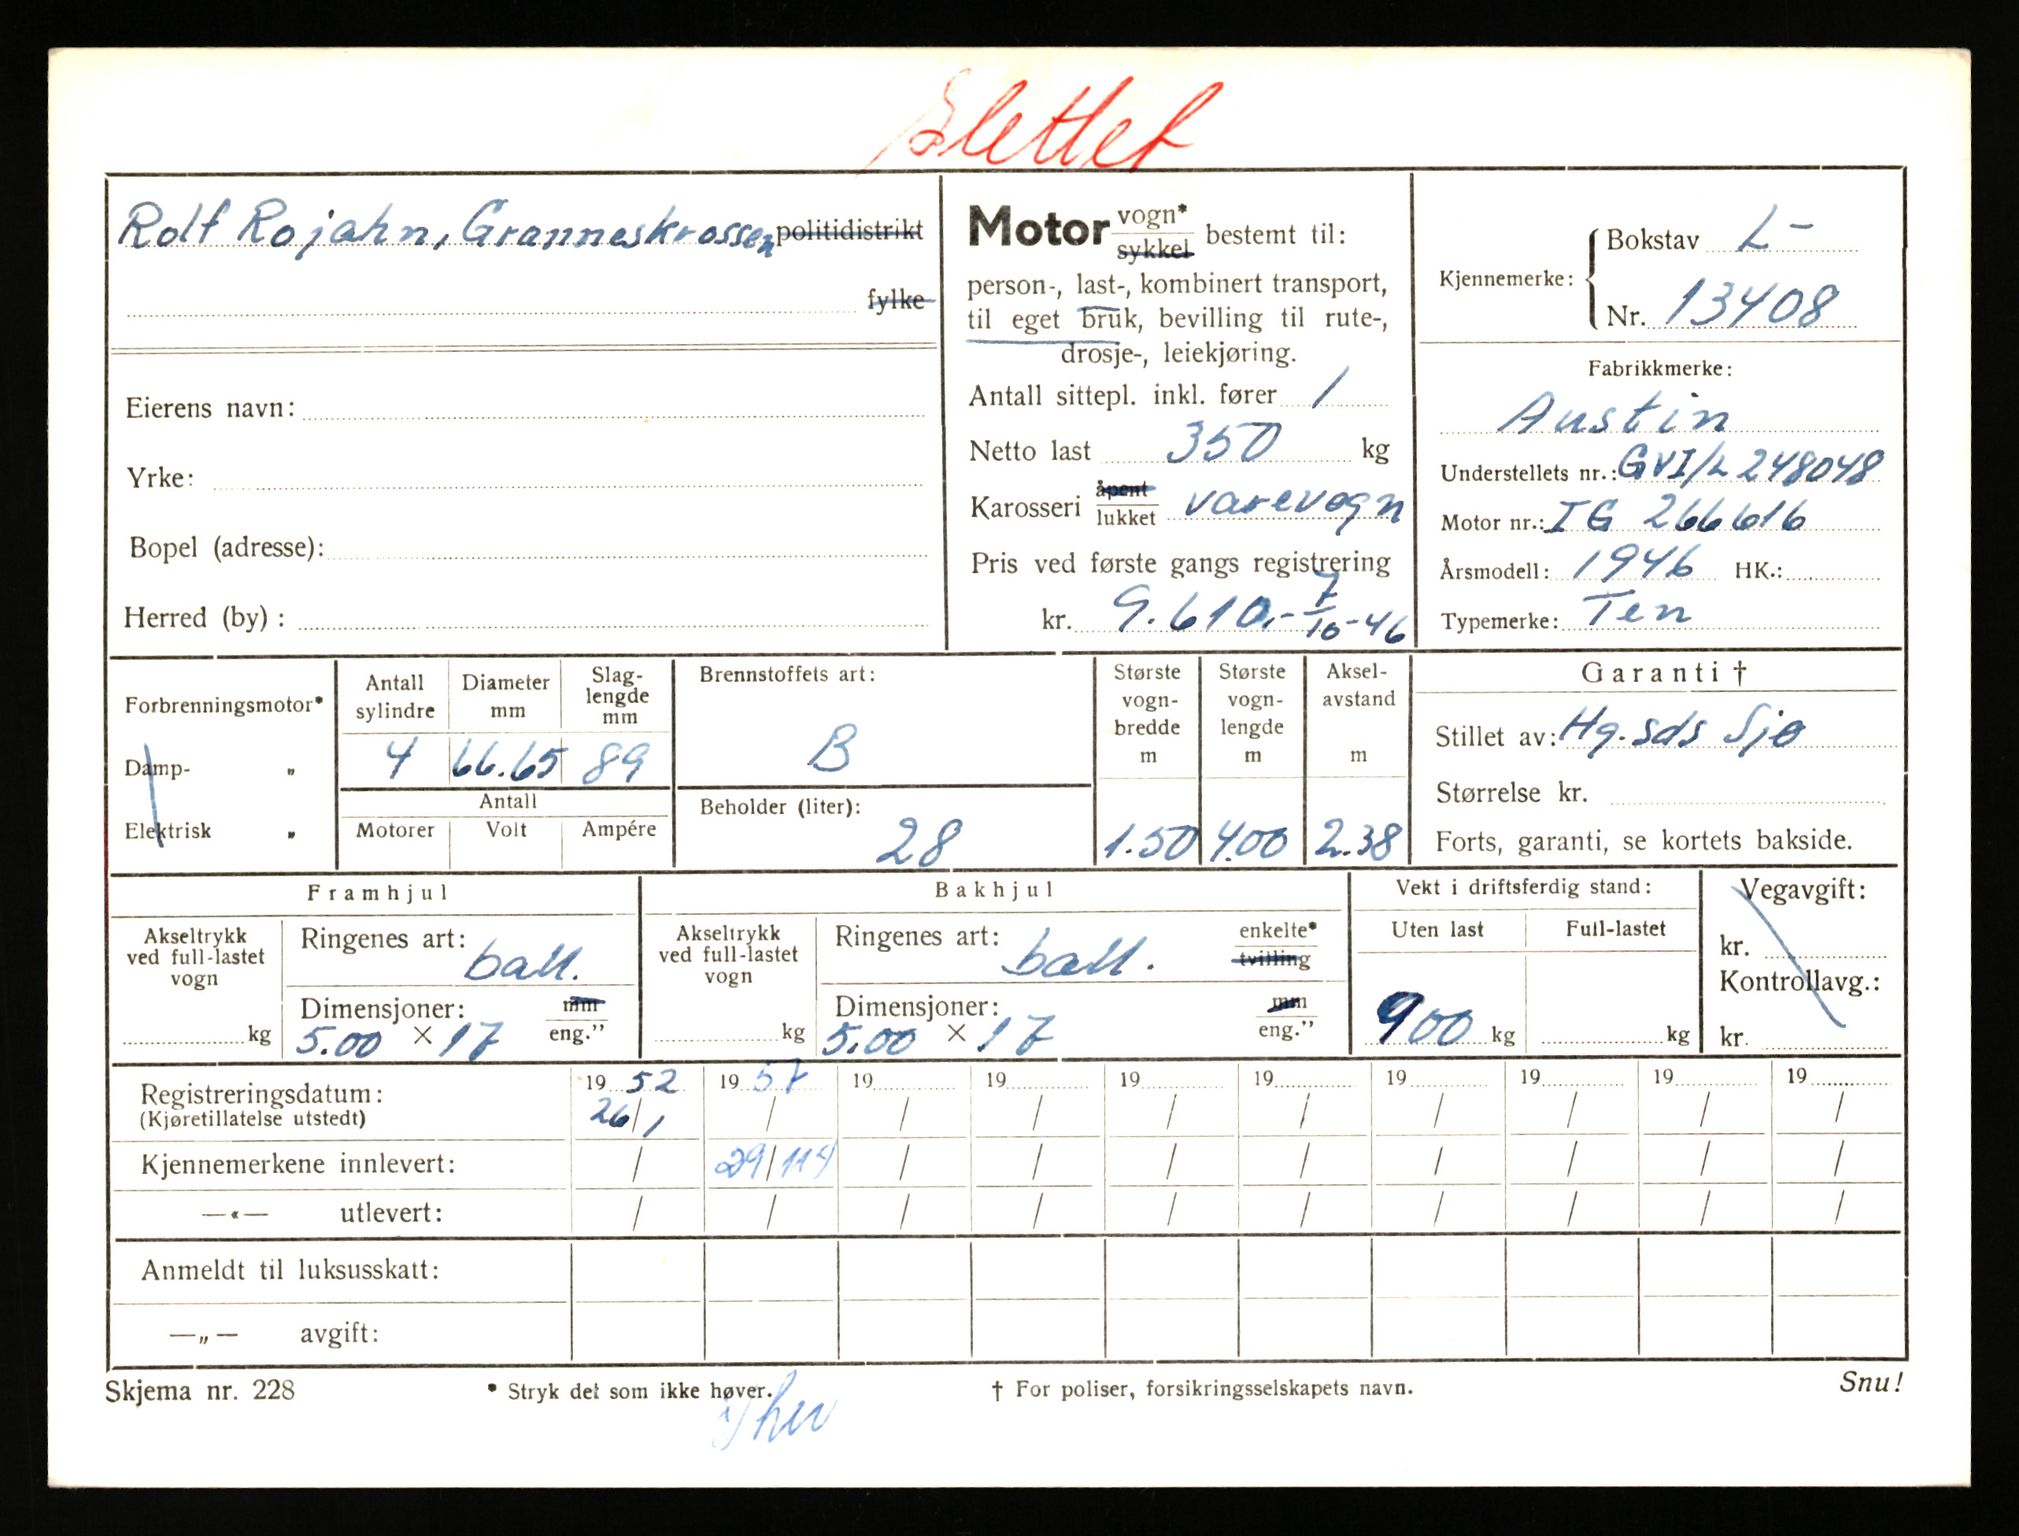 Slettet
Rolf Rojahn, Granneskrossen politidistrikt
fylke
Eierens navn:
Yrke:
Bopel (adresse):
Herred (by) :
Motor vogn* sykkel bestemt til:
person-, last-, kombinert transport,
til eget bruk, bevilling til rute-,
drosje-, leiekjøring.
Antall sittepl. inkl. fører 1
Netto last 350 kg
Karosseri åpent lukket varevogn
Pris ved første gangs registrering
kr. 9.610,- 7/10-46
Kjennemerke: Bokstav L-
Nr. 13408
Fabrikkmerke:
Austin
Understellets nr.: GVI/L 248048
Motor nr.: IG 266616
Årsmodell: 1946 HK.:
Typemerke: Ten
Forbrenningsmotor*
Damp- „
Elektrisk „
Antall sylindre Diameter mm Slag-lengde mm
4 66.65 89
Antall
Motorer Volt Ampére
Brennstoffets art:
B
Beholder (liter):
28
Største vogn-bredde m Største vogn-lengde m Aksel-avstand m
1.50 4.00 2.38
Garanti †
Stillet av: Hg.sds Sjø
Størrelse kr.
Forts, garanti, se kortets bakside.
Framhjul
Akseltrykk ved full-lastet vogn
kg
Ringenes art: ball.
Dimensjoner: mm
5.00 × 17 eng.”
Bakhjul
Akseltrykk ved full-lastet vogn
kg
Ringenes art: ball. enkelte* tvilling
Dimensjoner: mm
5.00 × 17 eng.”
Vekt i driftsferdig stand:
Uten last Full-lastet
900 kg kg
Vegavgift:
kr.
Kontrollavg.:
kr.
Registreringsdatum: 19 52 19 57 19 19 19 19 19 19 19 19
(Kjøretillatelse utstedt) 26/1 / / / / / / / / /
Kjennemerkene innlevert: / 29/11 / / / / / / / /
—«— utlevert: / / / / / / / / / /
Anmeldt til luksusskatt:
—„— avgift:
Skjema nr. 228 * Stryk det som ikke høver. † For poliser, forsikringsselskapets navn. Snu!